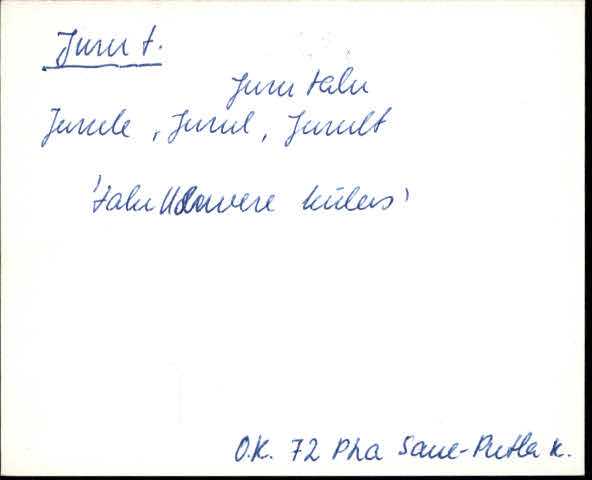 Juru t.
Juru talu
Jurule, Jurul, Jurult
'talu Udevere külas'
O.K. 72 Pha Saue-Putla k.